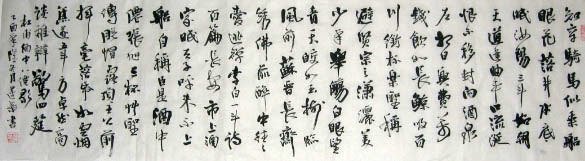 知章騎馬似乘船
眼花落井水底
眠汝陽三斗始朝
天道逢曲車口流涎
恨不移封向酒泉
左相日興費萬
錢飲如長鯨吸百
川銜杯樂聖稱
避賢宗之瀟灑美
少年舉觴白眼望
青天皎如玉樹臨
風前蘇晉長齋
繡佛前醉中往
往愛逃禪李白一斗詩
百篇長安市上酒
家眠天子呼來不上
船自稱臣是酒中
仙張旭三杯草聖
傳脫帽露頂王公前
揮毫落紙如雲煙
焦遂五斗方卓然高
談雄辯驚四筵
杜甫飲中八仙歌